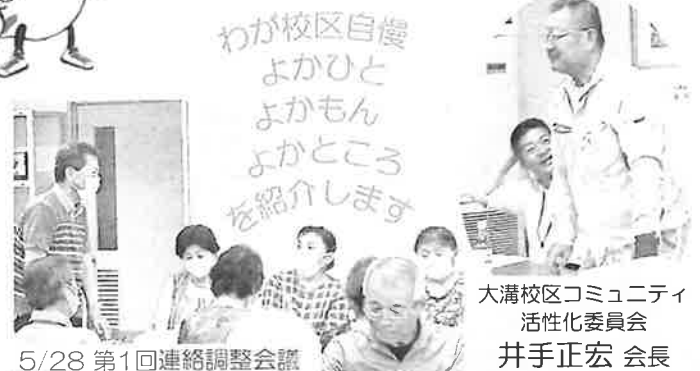 わが校区自慢
よかひと
よかもん
よかところ
を紹介します
5/28 第1回連絡調整会議
大溝校区コミュニティ
活性化委員会
井手正宏 会長